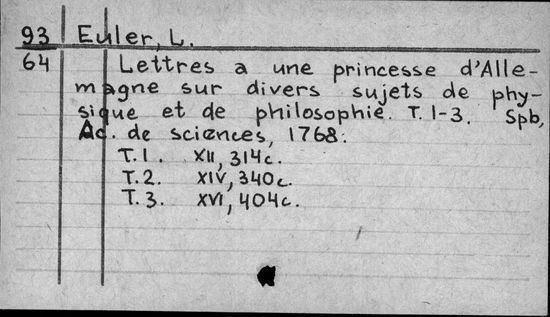 93 Euler, L.
64 Lettres a une princesse d'Alle-
magne sur divers sujets de phy-
sique et de philosophie. T. 1-3. Spb,
Ac. de sciences, 1768.
T. 1. XII, 314c.
T. 2. XIV, 340c.
T. 3. XVI, 404c.